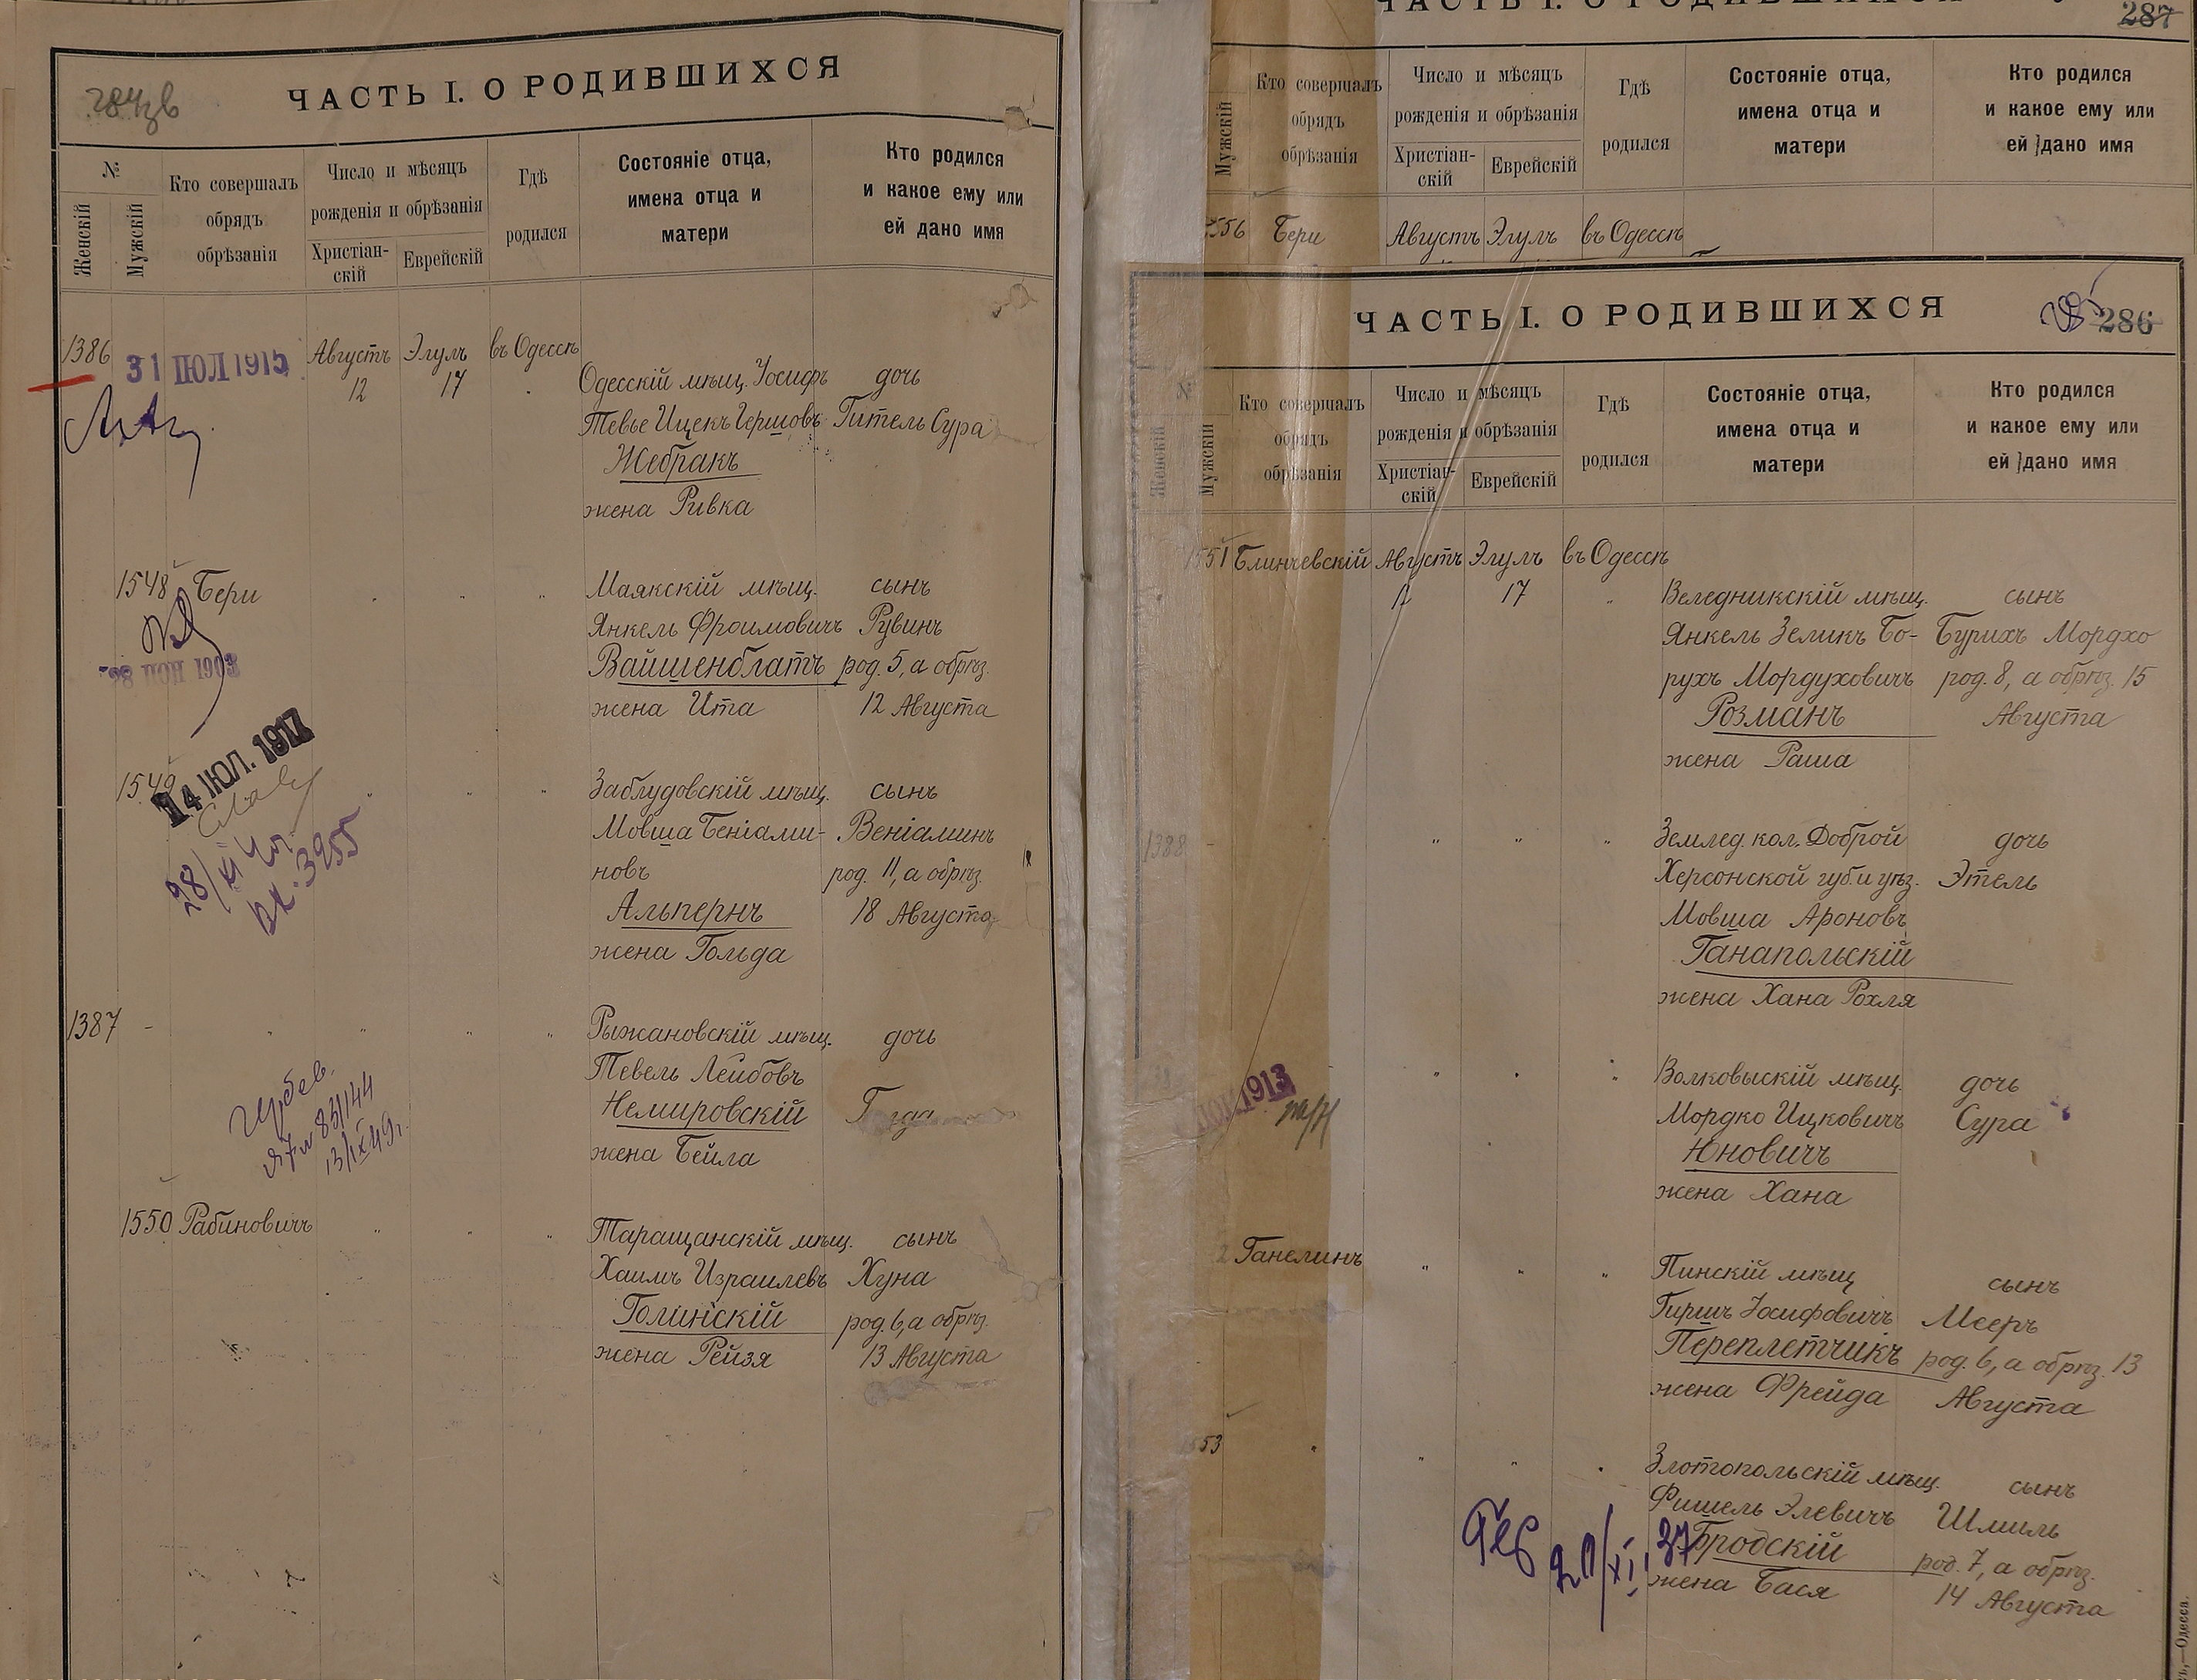 ЧАСТЬ I. О РОДИВШИХСЯ
№
Женскій
Мужскій
Кто совершалъ
обрядъ
обрѣзанія
Число и мѣсяцъ
рожденія и обрѣзанія
Христіан-
скій
Еврейскій
Гдѣ
родился
Состояніе отца,
имена отца и
матери
Кто родился
и какое ему или
ей дано имя
1386
31 ІЮЛ 1915
Августъ Элулъ въ Одессѣ
12 17
Одесскій мѣщ. Іосифъ дочь
Тевье Ицекъ Гершовъ Гитель Сура
Жебракъ
жена Ривка
1548 Бери
Маякскій мѣщ. сынъ
Янкель Фроимовичъ Рувинъ
Вайшенблатъ род. 5, а обрѣз.
жена Ита 12 Августа
28 1903
14 ІЮЛ. 1917
1549
28/XI
вх. 3955
Заблудовскій мѣщ. сынъ
Мовша Беніами- Веніаминъ
новъ род. 11, а обрѣз.
Альпернъ 18 Августа
жена Гольда
1387 - " " " "
Рыжановскій мѣщ. дочь
Тевель Лейбовъ
Немировскій
жена Бейла
83/144
13/IX 49г.
1550 Рабиновичъ " " "
Таращанскій мѣщ. сынъ
Хаимъ Израилевъ Хуна
Голинскій род. 6, а обрѣз.
жена Рейзя 13 Августа
ЧАСТЬ I. О РОДИВШИХСЯ
287
Мужскій
Кто совершалъ
обрядъ
обрѣзанія
Число и мѣсяцъ
рожденія и обрѣзанія
Христіан-
скій
Еврейскій
Гдѣ
родился
Состояніе отца,
имена отца и
матери
Кто родился
и какое ему или
ей дано имя
1556 Бери Августъ Элулъ въ Одессѣ
ЧАСТЬ I. О РОДИВШИХСЯ
286
№
Женскій
Мужскій
Кто совершалъ
обрядъ
обрѣзанія
Число и мѣсяцъ
рожденія и обрѣзанія
Христіан-
скій
Еврейскій
Гдѣ
родился
Состояніе отца,
имена отца и
матери
Кто родился
и какое ему или
ей дано имя
1551 Блинчевскій Августъ Элулъ въ Одессѣ
12 17 "
Веледникскій мѣщ. сынъ
Янкель Зеликъ Бо- Бурихъ Мордхо
рухъ Мордуховичъ род. 8, а обрѣз. 15
Розманъ Августа
жена Раша
1388 - " " "
Землед. кол. Доброй дочь
Херсонской губ. и уѣз. Этель
Мовша Ароновъ
Ганапольскій
жена Хана Рохля
1913
Волковыскій мѣщ. дочь
Мордко Ицковичъ Сура
Юновичъ
жена Хана
2 Ганелинъ " " "
Пинскій мѣщ сынъ
Гиршъ Іосифовичъ Мееръ
Переплетчикъ род. 6, а обрѣз. 13
жена Фрейда Августа
53 " " " "
Злотопольскій мѣщ. сынъ
Фишель Элевичъ Шмиль
Бродскій род. 7, а обрѣз.
жена Бася 14 Августа
Одесса.